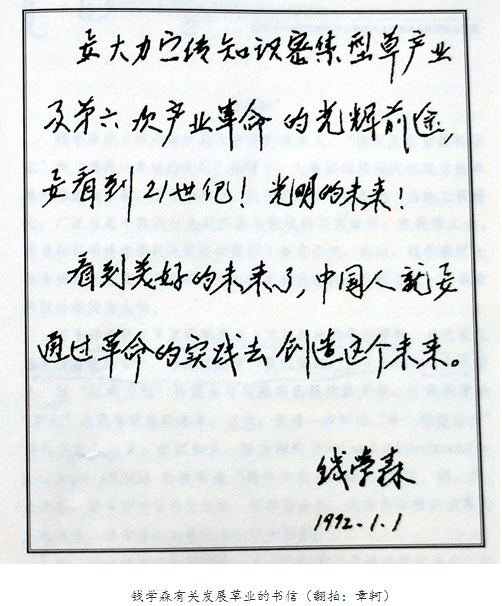 要大力宣传知识密集型草产业
及第六次产业革命的光辉前途,
要看到21世纪!光明的未来!
看到美好的未来了,中国人就要
通过革命的实践去创造这个未来。
钱学森
1992.1.1
钱学森有关发展草业的书信(翻拍:章轲)